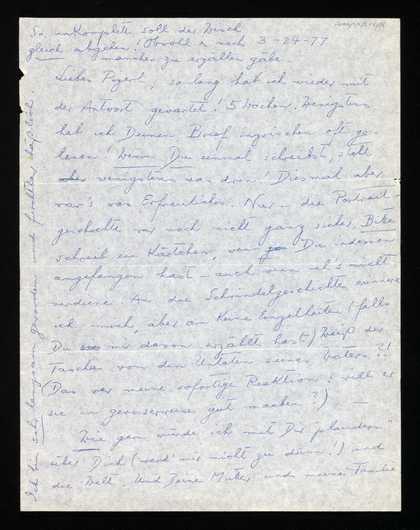 So unkomplett soll der Wisch
gleich abgehen! Obwohl noch 3-24-77
mancher zu erzählen gäbe.
Lieber, so lang hab ich wieder mit
der Antwort gewartet! 5 Wochen. Wenigstens
hab ich Deinen Brief inzwischen oft ge-
lesen! Wenn Du einmal schreibst, steht
wenigstens was drin! Diesmal aber
war's was Erfreuliches. Nur - die
geschichte war noch nicht ganz sicher. Bitte
schreib ein Kärtchen, wenn Du indessen
angefangen hast - auch wenn ich's nicht
verdiene. An die Schwindelgeschichte erinnere
ich mich, aber an keine Einzelheiten (falls
Du mir davon erzählt hast -) Weiß der
von den Untaten seines Vaters?!
(Das war meine sofortige Reaktion: will er
sie in gewisser weise gut machen?) —
Wie gern würde ich mit Dir plaudern -
über Dich (werd' mir nicht zu dünn!) und
die Welt. Und Deine Mutter und meine Familie
Ich bin sehr langsam geworden und furchtbar